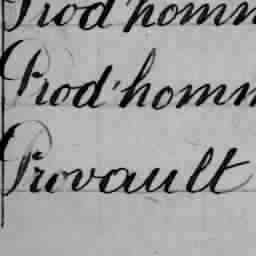 Prod'homm
Prod'homm
Provault